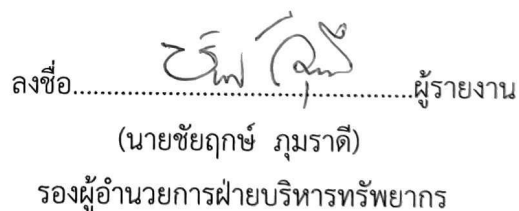 ลงชื่อ..................................................ผู้รายงาน
(นายชัยฤกษ์ ภุมราดี)
รองผู้อำนวยการฝ่ายบริหารทรัพยากร